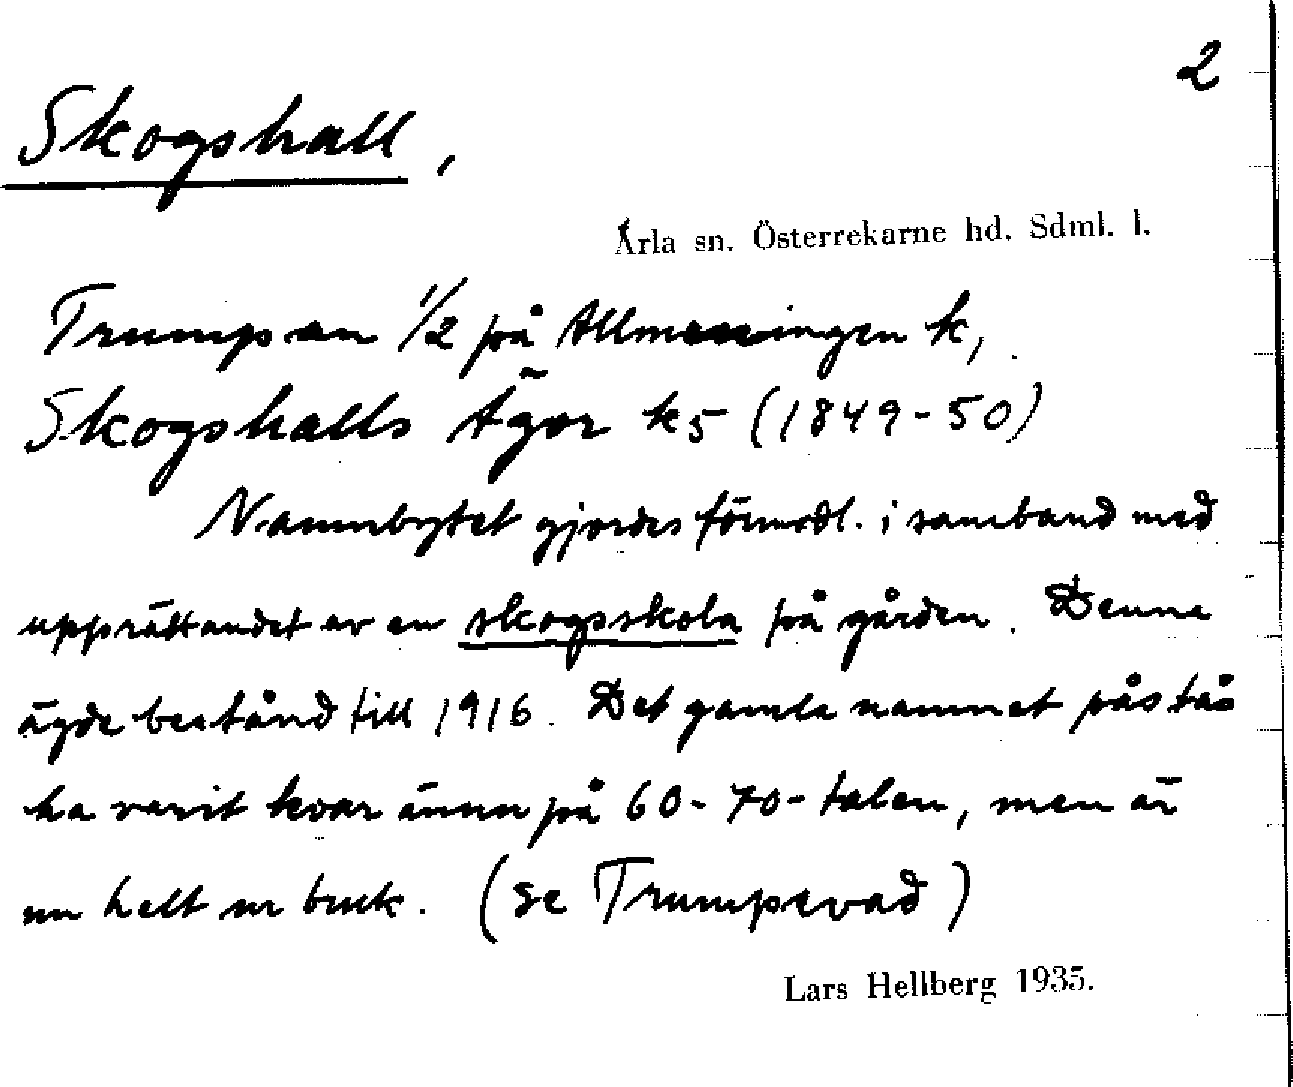 2
Skogshall,
Ärla sn. Österrekarne hd. Sdml. l.
Trumpan 1/2 på Allmenningen k,
Skogshalls Ägor k5 (1849-50)
Namnbytet gjordes förmodl. i samband med
upprättandet av en skogsskola på gården. Denna
ägde bestånd till 1916. Det gamla namnet påstås
ha varit kvar ännu på 60-70-talen, men är
nu helt ur bruk. (se Trumpevad)
Lars Hellberg 1935.